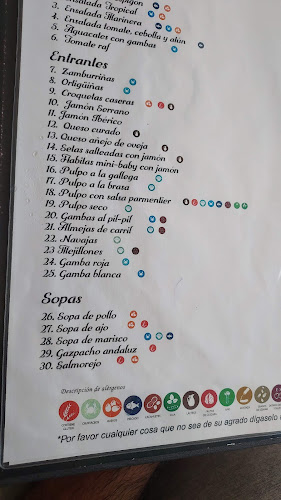 Ensalada Tropical
3. Ensalada Marinera
4. Ensalada tomate, cebolla y atún
5. Aguacates con gambas
6. Tomate raf
Entrantes
7. Zamburriñas
8. Ortigüiñas
9. Croquelas caseras
10. Jamón Serrano
11. Jamón Ibérico
12. Queso curado
13. Queso añejo de oveja
14. Setas salteadas con jamón
15. Habitas mini-baby con jamón
16. Pulpo a la gallega
17. Pulpo a la brasa
18. Pulpo con salsa parmentier
19. Pulpo seco
20. Gambas al pil-pil
21. Almejas de carril
22. Navajas
23. Mejillones
24. Gamba roja
25. Gamba blanca
Sopas
26. Sopa de pollo
27. Sopa de ajo
28. Sopa de marisco
29. Gazpacho andaluz
30. Salmorejo
Descripción de alérgenos
*Por favor cualquier cosa que no sea de su agrado dígaselo